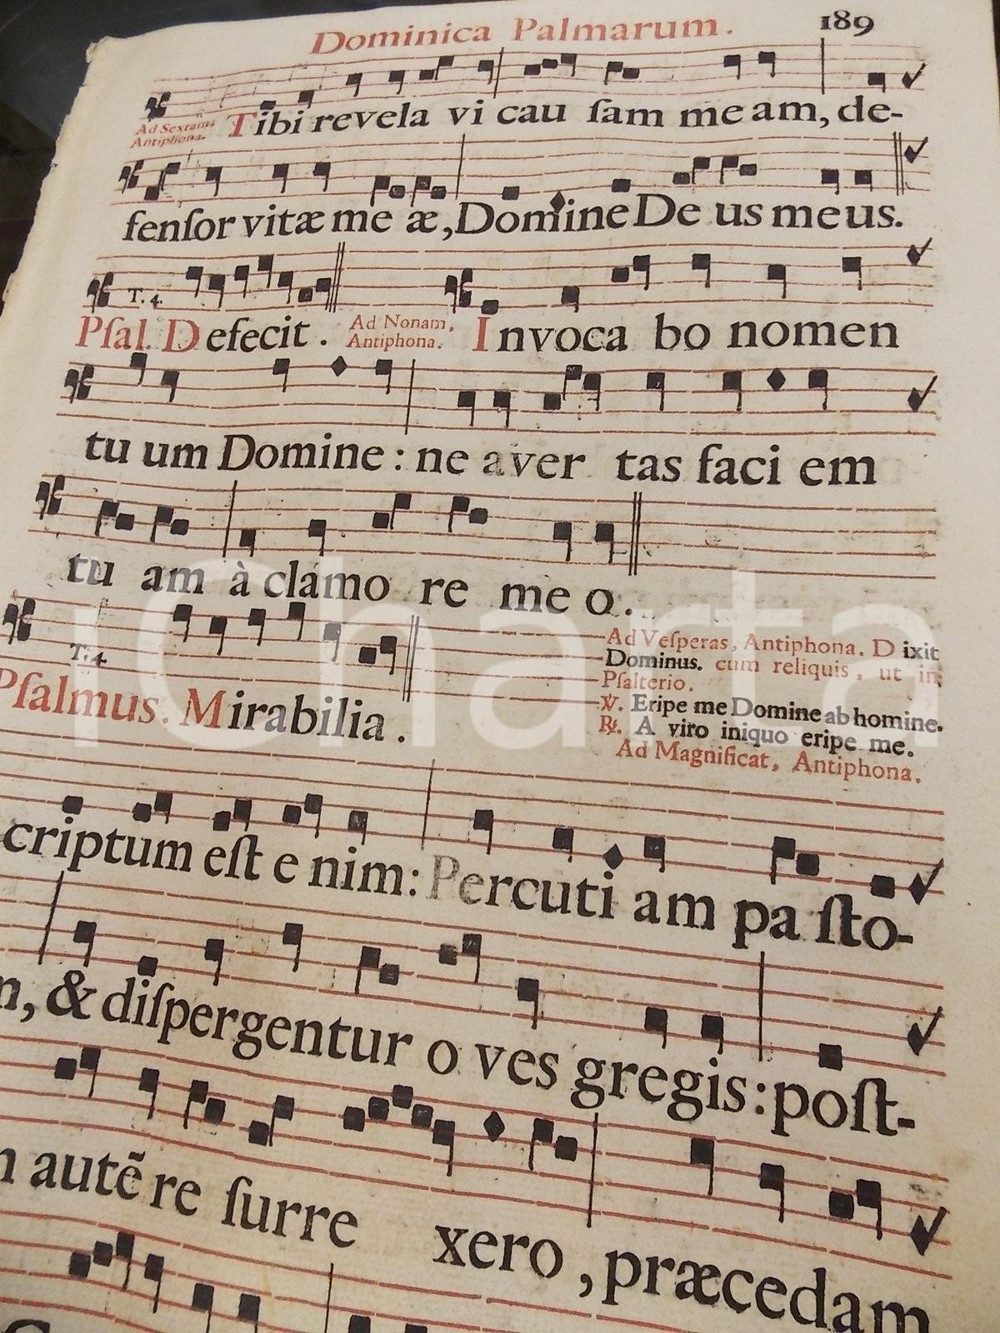 Dominica Palmarum. 189
Ad Sextam, Antiphona. Tibi revela vi cau ſam me am, de-
fenſor vitæ me æ, Domine De us meus.
T. 4.
Pſal. Defecit. Ad Nonam, Antiphona. Invoca bo nomen
tu um Domine : ne a ver tas faci em
tu am à clamo re me o.
T. 4
Pſalmus. Mirabilia.
Ad Veſperas, Antiphona. D ixit
Dominus. cum reliquis, ut in
Pſalterio.
℣. Eripe me Domine ab homine.
℟. A viro iniquo eripe me.
Ad Magnificat, Antiphona.
criptum eſt e nim: Percuti am pa ſto-
, & diſpergentur o ves gregis: poſt-
autē re ſurre xero, præcedam
iCharta